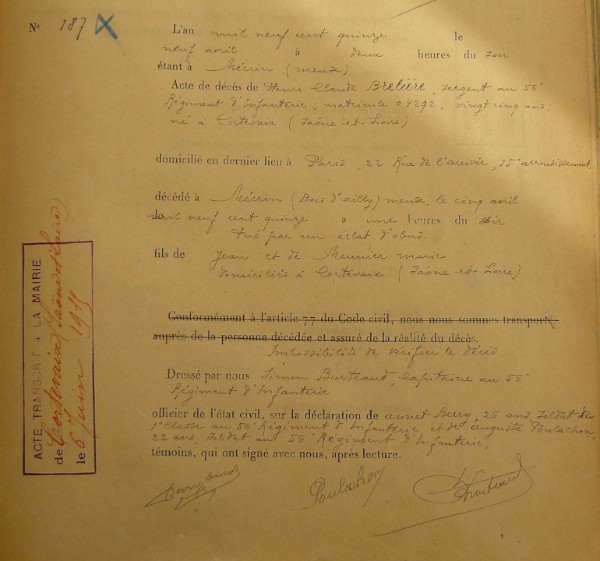 N° 187
L'an mil neuf cent quinze le
neuf avril à deux heures du soir
étant à Mécrin (meuse)
Acte de décès de Henri Claude Brelière, sergent au 56e
Régiment d'Infanterie, matricule 04292, vingt cinq ans,
né à Cortevaix (Saône-et-Loire)
domicilié en dernier lieu à Paris, 22 Rue de l'arrivée, 15e arrondissement
décédé à Mécrin (Bois d'ailly) meuse, le cinq avril
mil neuf cent quinze à une heures du soir
tué par un éclat d'obus.
fils de Jean et de Meunier marie
domiciliés à Cortevaix (Saône-et-Loire)
Conformément à l'article 77 du Code civil, nous nous sommes transporté
auprès de la personne décédée et assuré de la réalité du décès.
Impossibilité de vérifier le décès
Dressé par nous Simon Burteaud, Capitaine au 56e
Régiment d'Infanterie
officier de l'état civil, sur la déclaration de annet Berry, 26 ans, Soldat de
1e classe au 56e Régiment d'Infanterie et de auguste Poulachon,
22 ans, Soldat au 56e Régiment d'Infanterie,
témoins, qui ont signé avec nous, après lecture.
Poulachon
ACTE TRANSCRIT A LA MAIRIE
de Cortevaix (Saône et Loire)
le 6 juin 1915